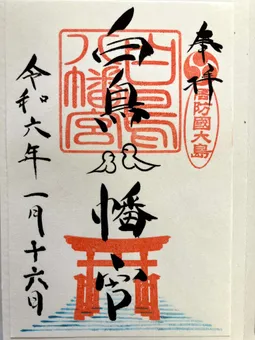 奉拝
周防國大島
白鳥
八幡宮
白鳥八幡宮
令和六年一月十六日